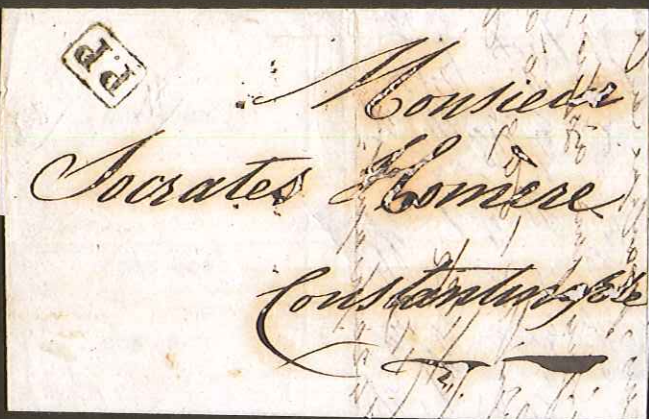 P.P.
Monsieur
Socrates Homère
Constantinople